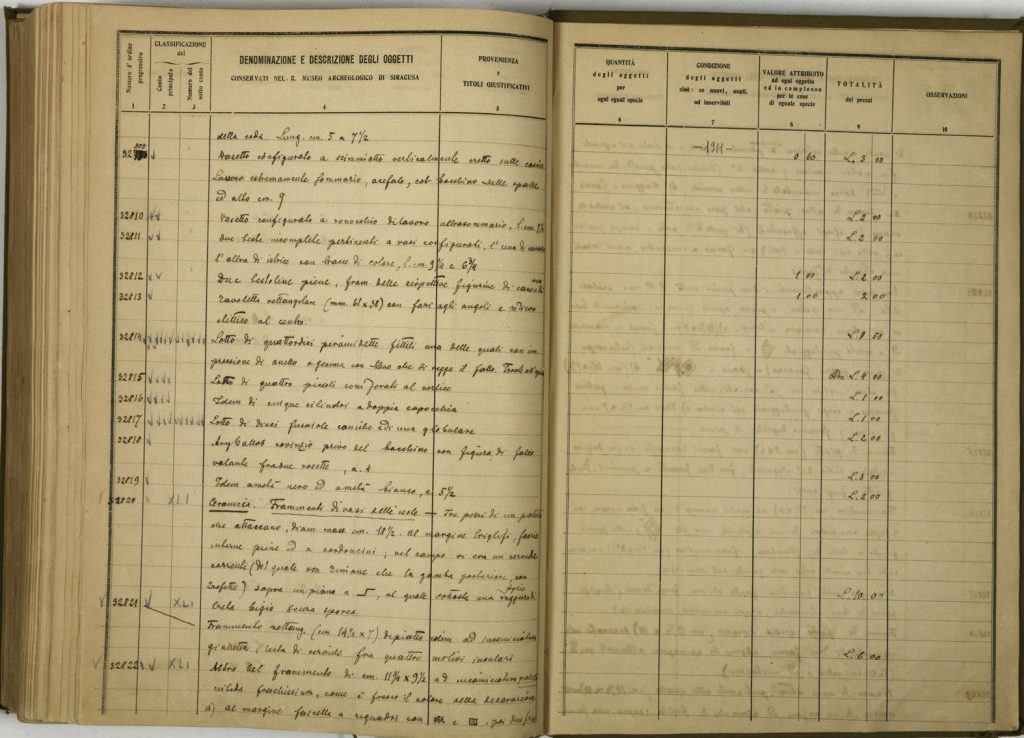 Numero d'ordine progressivo
CLASSIFICAZIONE
del
Conto principale
Numero del sotto conto
DENOMINAZIONE E DESCRIZIONE DEGLI OGGETTI
CONSERVATI NEL R. MUSEO ARCHEOLOGICO DI SIRACUSA
PROVENIENZA
e
TITOLI GIUSTIFICATIVI
1 2 3 4 5
della coda. Lung. cm. 5 a 7 1/2
Vasetto configurato a scimmiotto verticalmente eretto sulle
Lavoro estremamente sommario, acefalo, col bocchino sulle spalle
ed alto cm. 9
32810 Vasetto configurato a ranocchio di lavoro
32811 Due teste incomplete pertinenti a vasi configurati, l'una di
l'altra di istrice con tracce di colore,
32812 Due testoline piene, fram. delle rispettive figurine di
32813 Tavoletta rettangolare (mm. 61 x 38) con fori agli angoli e
al centro.
32814 Lotto di quattordici piramidette fittili una delle quali con im
pressione di anello o gemma con che di regge il fallo.
32815 Lotto di quattro piccoli coni forati al vertice
32816 Idem di cinque cilindri a doppia capocchia
32817 Lotto di dieci fusaiole coniche ed una globulare
32818 Aryballos corinzio privo del bocchino con figura di falco
volante fra due rosette, a. 4
32819 Idem ametà nero ed ametà bianco, a. 5 1/2
V 32820 XLI Ceramica. Frammenti di vasi dell'isole — Tre pezzi di un
che attaccano, diam. mass. cm. 18 1/2. al margine faccie
interne piene ed a cordoncini; nel campo vi era un cervide
corrente (del quale non rimane che la gamba posteriore, con
) sopra un piano a , al quale sottosta una
V 32821 XLI Creta bigia scura sporca.
Frammento rettang. (cm. 14 1/2 x 7) di piatto idem ad
gialletta; testa di cervide fra quattro motivi
V 32822 XLI Altro bel frammento di cm. 11 3/4 x 9 1/2 ad
freschissima, come è fresco il colore della decorazione
a) al margine fascetta a riquadri con e , poi due
QUANTITÀ
degli oggetti
per
ogni egual specie
CONDIZIONE
degli oggetti
cioè: se nuovi, usati,
od inservibili
VALORE ATTRIBUITO
ad ogni oggetto
ed in complesso
per le cose
di eguale specie
TOTALITÀ
dei prezzi
OSSERVAZIONI
6 7 8 9 10
—1911—
0 60 L. 3 00
L. 2 00
L. 2 00
1 00 L. 2 00
1 00 2 00
L. 8 50
L. 4 00
L. 1 00
L. 1 00
L. 2 00
L. 3 00
L. 2 00
L. 10 00
L. 6 00